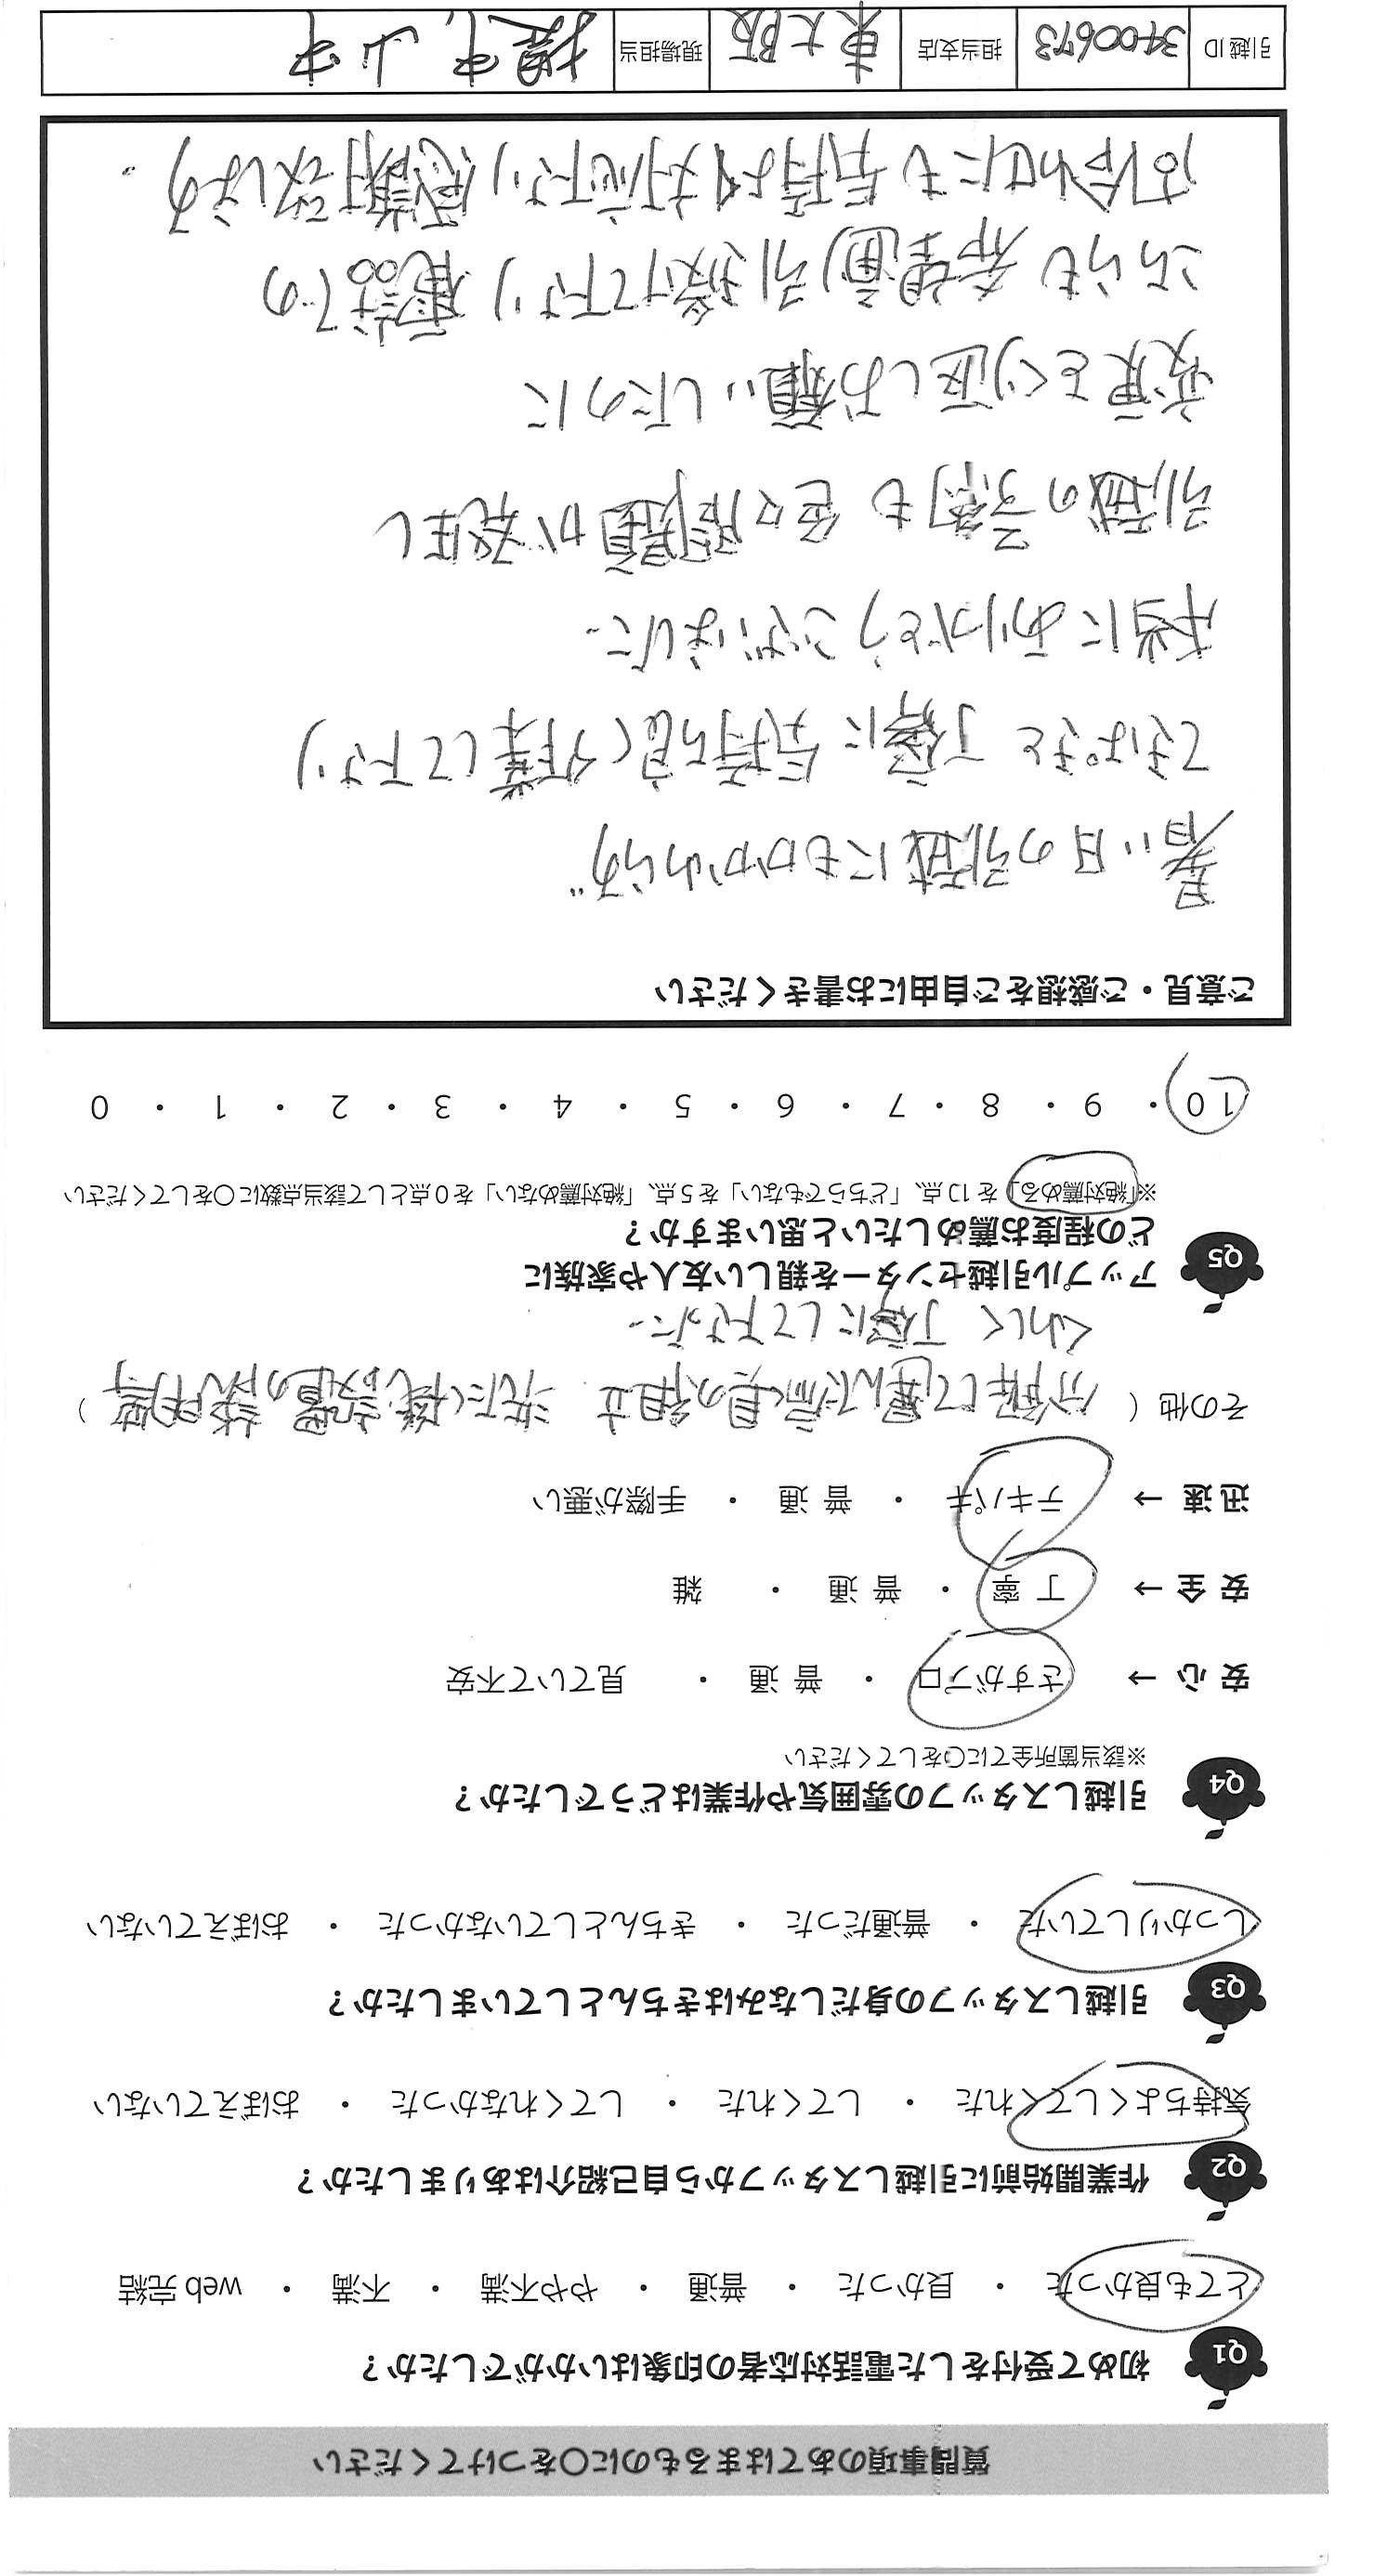 質問事項のあてはまるものに〇をつけてください
Q1 初めて受付をした電話対応者の印象はいかがでしたか？
とても良かった ・ 良かった ・ 普通 ・ やや不満 ・ 不満 ・ web 完結
Q2 作業開始前に引越しスタッフから自己紹介はありましたか？
気持ちよくしてくれた ・ してくれた ・ してくれなかった ・ おぼえていない
Q3 引越しスタッフの身だしなみはきちんとしていましたか？
しっかりしていた ・ 普通だった ・ きちんとしていなかった ・ おぼえていない
Q4 引越しスタッフの雰囲気や作業はどうでしたか？
※該当箇所全てに〇をしてください
安 心 → さすがプロ ・ 普 通 ・ 見ていて不安
安 全 → 丁 寧 ・ 普 通 ・ 雑
迅 速 → テキパキ ・ 普 通 ・ 手際が悪い
その他 （ 分解して運んで家具の組立 洗たく機設置の説明等 ）
くわしく 丁寧にして下さった。
Q5 アップル引越センターを親しい友人や家族に
どの程度お薦めしたいと思いますか？
※「絶対薦める」を10点、「どちらでもない」を5点、「絶対薦めない」を0点として該当点数に〇をしてください
10 ・ 9 ・ 8 ・ 7 ・ 6 ・ 5 ・ 4 ・ 3 ・ 2 ・ 1 ・ 0
ご意見・ご感想をご自由にお書きください
暑い日の引越にもかかわらず
てきぱきと 丁寧に 気持ち良く作業して下さり
本当にありがとうございました。
引越の予約も 色々問題が発生し
変更をくり返しお願いしたのに
こちらも 希望通り引受けて下さり 電話での
問合わせにも 気持よく対応下さり感謝致します。
引越 ID 3400673 担当支店 東大阪 現場担当